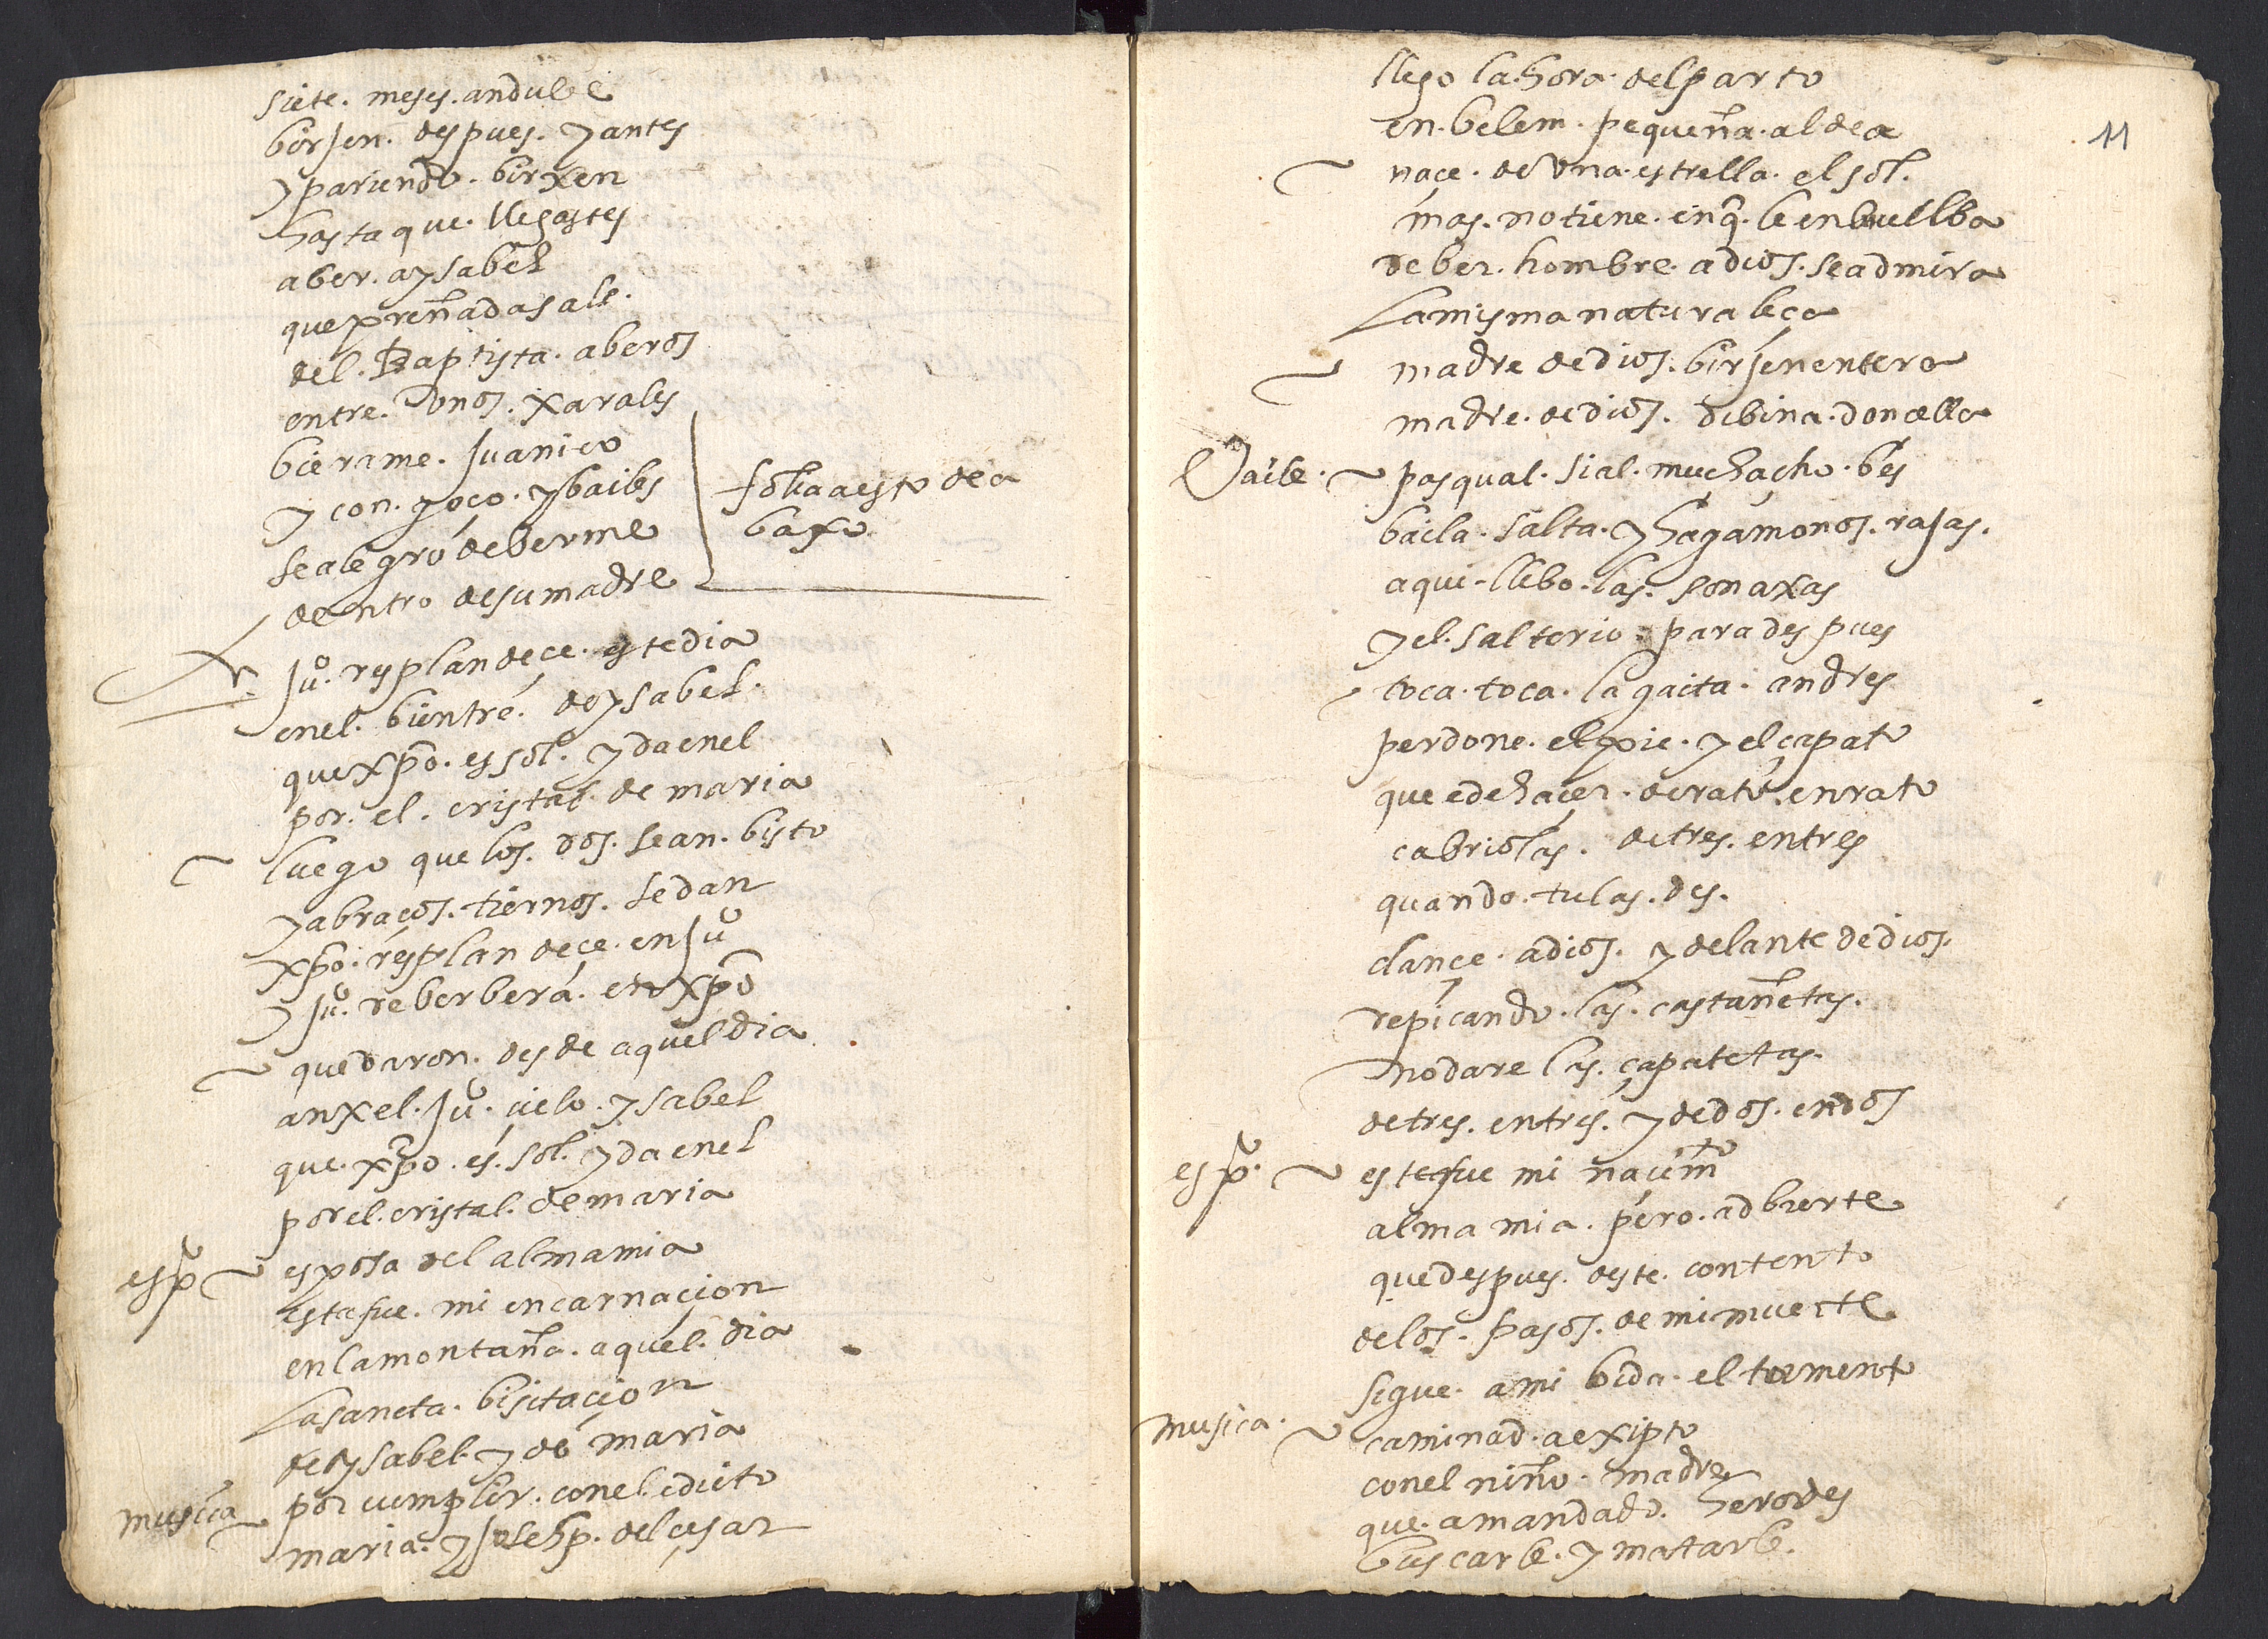 siete. meses. andube
birjen. despues. y antes
y pariendo. birxen
hasta que. llegastes
a ber. a ysabel
que preñada sale.
del. Baptista. a beros
entre. unos. xarales
bierame. Juanico
y con. goço. y bailes
se alegró de berme
dentro de su madre
folia a esto de a
baxo
Ju.º resplandeçe. este dia
en el. bientre. de ysabel.
que xpo. es sol. y da en el
por. el. cristal. de maria
luego que los. dos. se an. bisto
y abraços. tiernos. se dan
xpo. resplandeçe. en Juº
y Juº. reberbera. en xpo
quedaron. desde aquel dia
anxel. Juº. cielo. ysabel
que. xpo. es. sol. y da en el
por el. cristal. de maria
espº esposa del alma mia
esta fue. mi encarnaçion
en la montaña. aquel. dia
la sancta. bisitaçion
de ysabel. y de maria
musica por cumplir. con el. edicto
maria. y Josehp. del çesar
11
llego la hora. del parto
en. belem. pequeña. aldea
naçe. de una. estrella. el sol.
mas. no tiene. en q. le enbuelba
de ber. hombre. a dios. se admira
la misma naturaleça
madre de dios. birjen entera
madre. de dios. dibina. donçella
Baile. pasqual. si al. muchacho. bes
baila. salta. y hagamonos. rajas.
aqui. llebo. las. sonaxas
y el. salterio. para despues
toca. toca. la gaita. andres
perdone. el pie. y el çapato
que e de haçer. de rato. en rato
cabriolas. de tres. en tres
quando. tu las. des.
dançe. a dios. y delante de dios.
repicando. las. castañetas.
no dare las. çapatetas.
de tres. en tres. y de dos. en dos
espº. este fue mi naçimtº
alma mia. pero. adbierte
que despues. deste. contento
de los. pasos. de mi muerte
sigue. a mi bida. el tormento
musica. caminad. a exipto
con el niño. madre
que. a mandado. herodes
buscarle. y matarle.